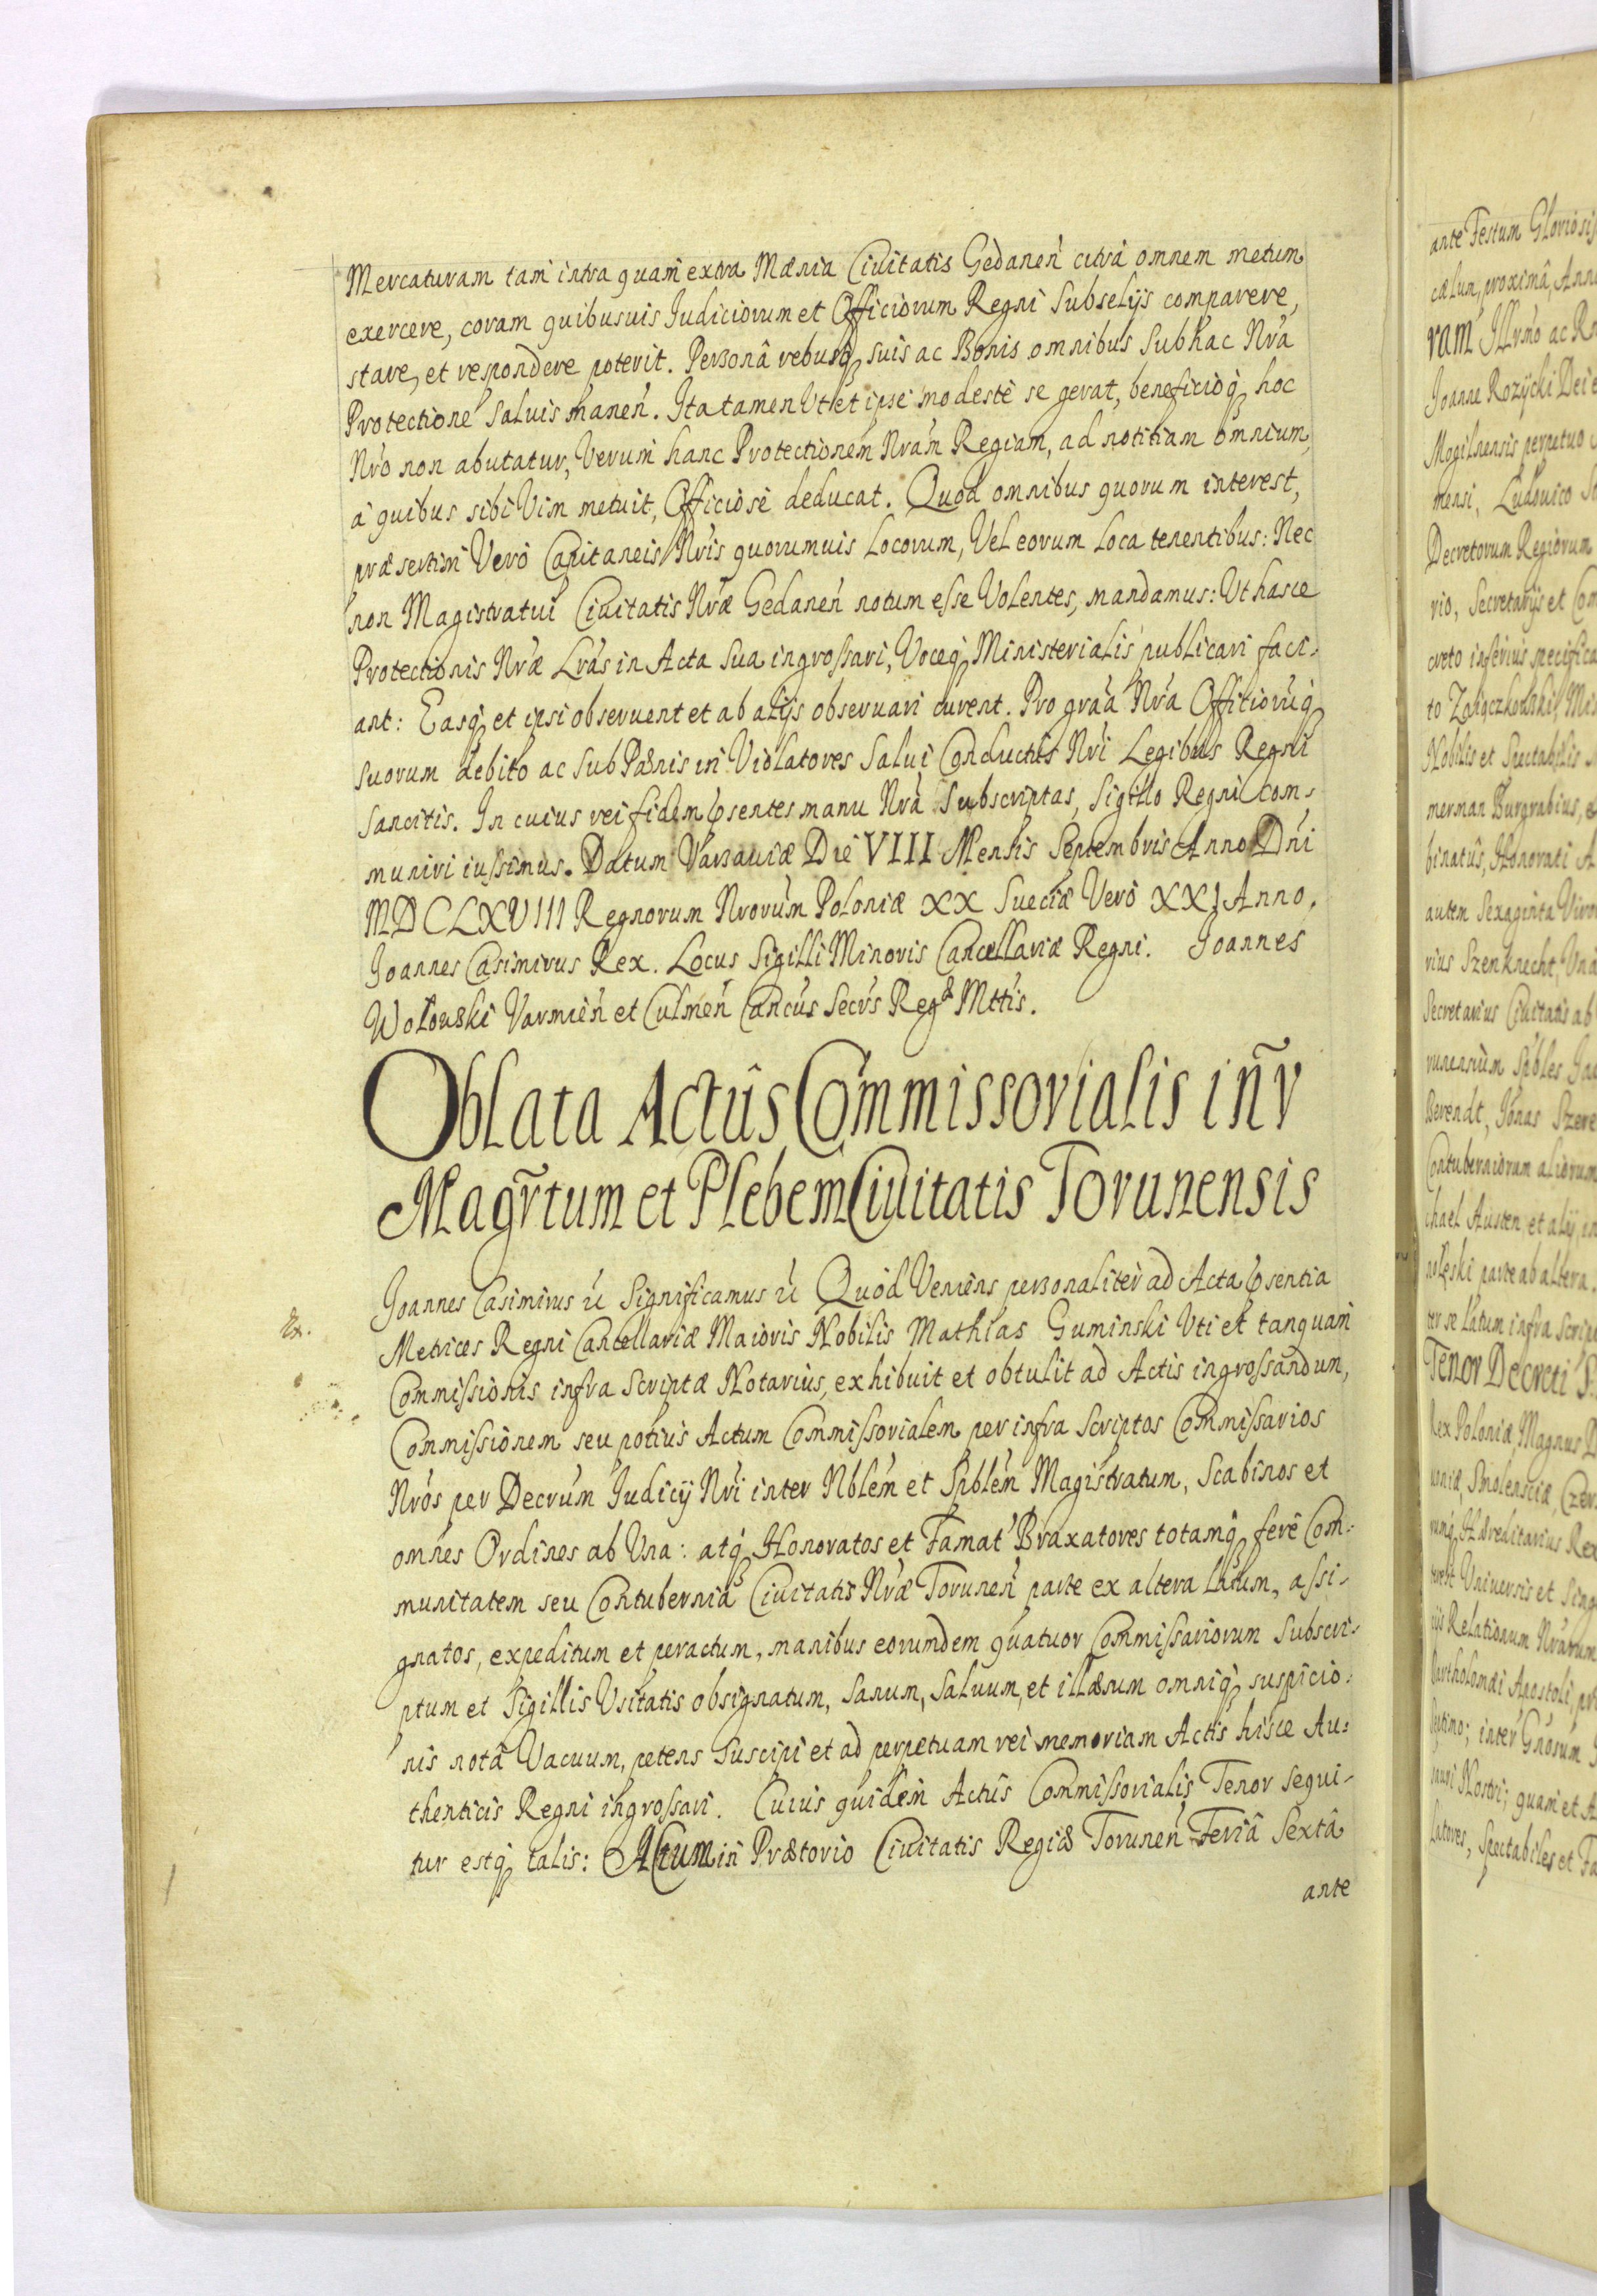 Mercaturam tam intra quam extra Mænia Ciuitatis Gedanen citrà omnem metum
exercere, coram quibusuis Judiciorum et Officiorum Regni Subselijs comparere,
stare, et respondere poterit. Personâ rebusq suis ac Bonis omnibus Sub hac Nra
Protectione Saluis manen. Ita tamen Ut et ipse modestè se gerat, beneficioq hoc
Nro non abutatur, Verum hanc Protectionem Nram Regiam, ad notitiam omnium,
à quibus sibi Vim metuit, Officiosè deducat. Quod omnibus quorum interest,
præsertim Verò Capitaneis Nris quorumuis Locorum, Vel eorum Loca tenentibus: Nec
non Magistratui Ciuitatis Nræ Gedanen notum esse Volentes, mandamus: Ut hasce
Protectionis Nræ Lras in Acta Sua ingrossari, Voceq Ministerialis publicari faci-
ant: Easq et ipsi obseruent et ab alijs obseruari curent. Pro graa Nra Officioruq
suorum debito ac Sub Pænis in Violatores Salui Conductus Nri Legibus Regni
Sancitis. In cuius rei fidem psentes manu Nra Subscriptas, Sigillo Regni com-
muniri iussimus. Datum Varsauiæ Die VIII Mensis Septembris Anno Dni
MDCLXVIII Regnorum Nrorum Poloniæ XX Sueciæ Verò XXI Anno.
Joannes Casimirus Rex. Locus Sigilli Minoris Cancellariæ Regni. Joannes
Wołowski Varmien et Culmen Cancus Secrs Regæ Mttis.
Oblata Actûs Commissorialis inr
Magrtum et Plebem Ciuitatis Torunensis
Joannes Casimirus etc Significamus etc Quod Veniens personaliter ad Acta psentia
Metrices Regni Cancellariæ Maioris Nobilis Mathias Guminski Uti et tanquam
Commissionis infra Scriptæ Notarius, exhibuit et obtulit ad Actis ingrossandum,
Commissionem seu potius Actum Commissorialem per infra Scriptos Commissarios
Nros per Decrum Judicij Nri inter Nblem et Spblem Magistratum, Scabinos et
omnes Ordines ab Una: atq Honoratos et Famat Braxatores totamq ferè Com-
munitatem seu Contubernia Ciuitatis Nræ Torunen parte ex altera Latum, assi-
gnatos, expeditum et peractum, manibus eorundem quatuor Commissariorum Subscri-
ptum et Sigillis Usitatis obsignatum, Sanum, Saluum, et illæsum omniq suspicio-
nis notâ Vacuum, petens Suscipi et ad perpetuam rei memoriam Actis hisce Au-
thenticis Regni ingrossari. Cuius quidem Actûs Commissorialis Tenor sequi-
tur estq talis: Actum in Prætorio Ciuitatis Regiæ Torunen Feriâ Sextâ
ante
ante Festum Gloriosis
cælum, proximâ, Anno
ram Illrmo ac
Joanne Rozycki Dei
Mogilnensis perpetuo
mensi, Ludouico
Decretorum Regiorum
rio, Secretarijs et Com
creto inferius specifica
Nobilis et Spectabilis
merman Burgrabius, e
binatus, Honorati A
autem Sexaginta Viro
rius Szenknecht, Una
Secretarius Ciuitatis ab
runensium Spbles Jac
Berendt, Jonas Szere
Contuberniorum aliorum
chael Austen, et alij in
parte ab altera.
ter se Latum infra Script
Tenor Decreti S
Rex Poloniæ, Magnus D
uoniæ, Smolensciæ, Czer
rumq Hæreditarius Rex
terest Uniuersis et Sing
ijs Relationum Nrarum
Bartholomæi Apostoli, pr
inter Gnosum
Nostri; quam et A
Latores, Spectabiles et Fa